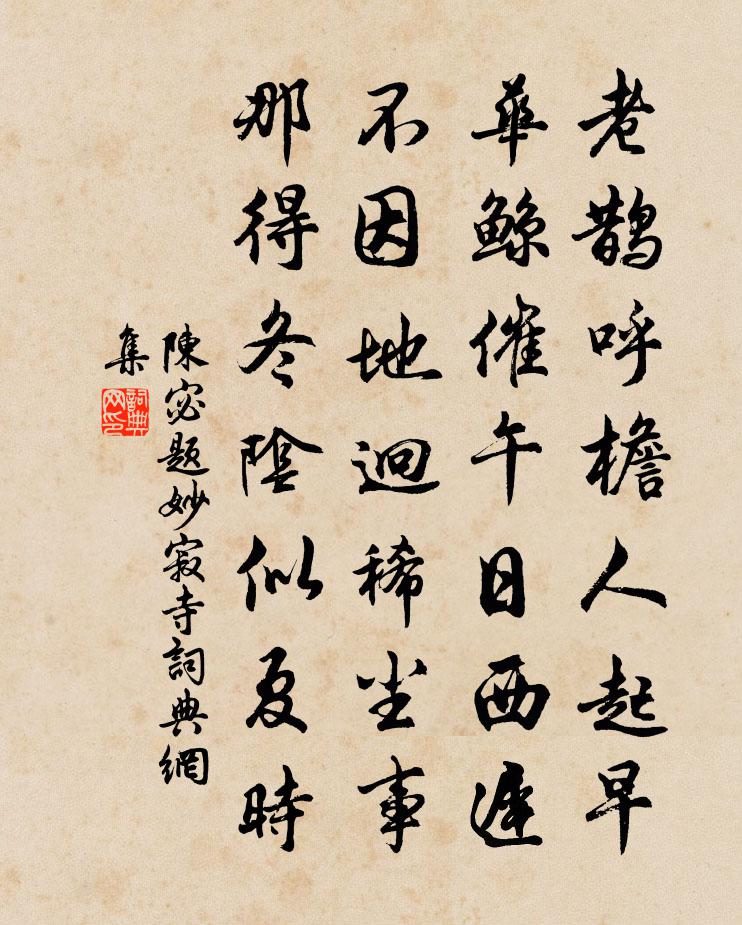 老鵲呼檐人起早
華鯨催午日西遲
不因地迥稀塵事
那得冬陰似夏時
陳宓題妙寂寺詞典網
集
詞典
网印